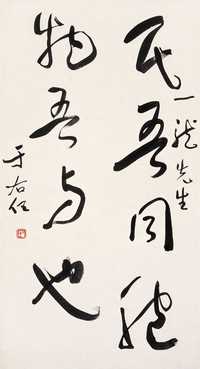 民吾同胞
一龙先生
物吾与也
于右任